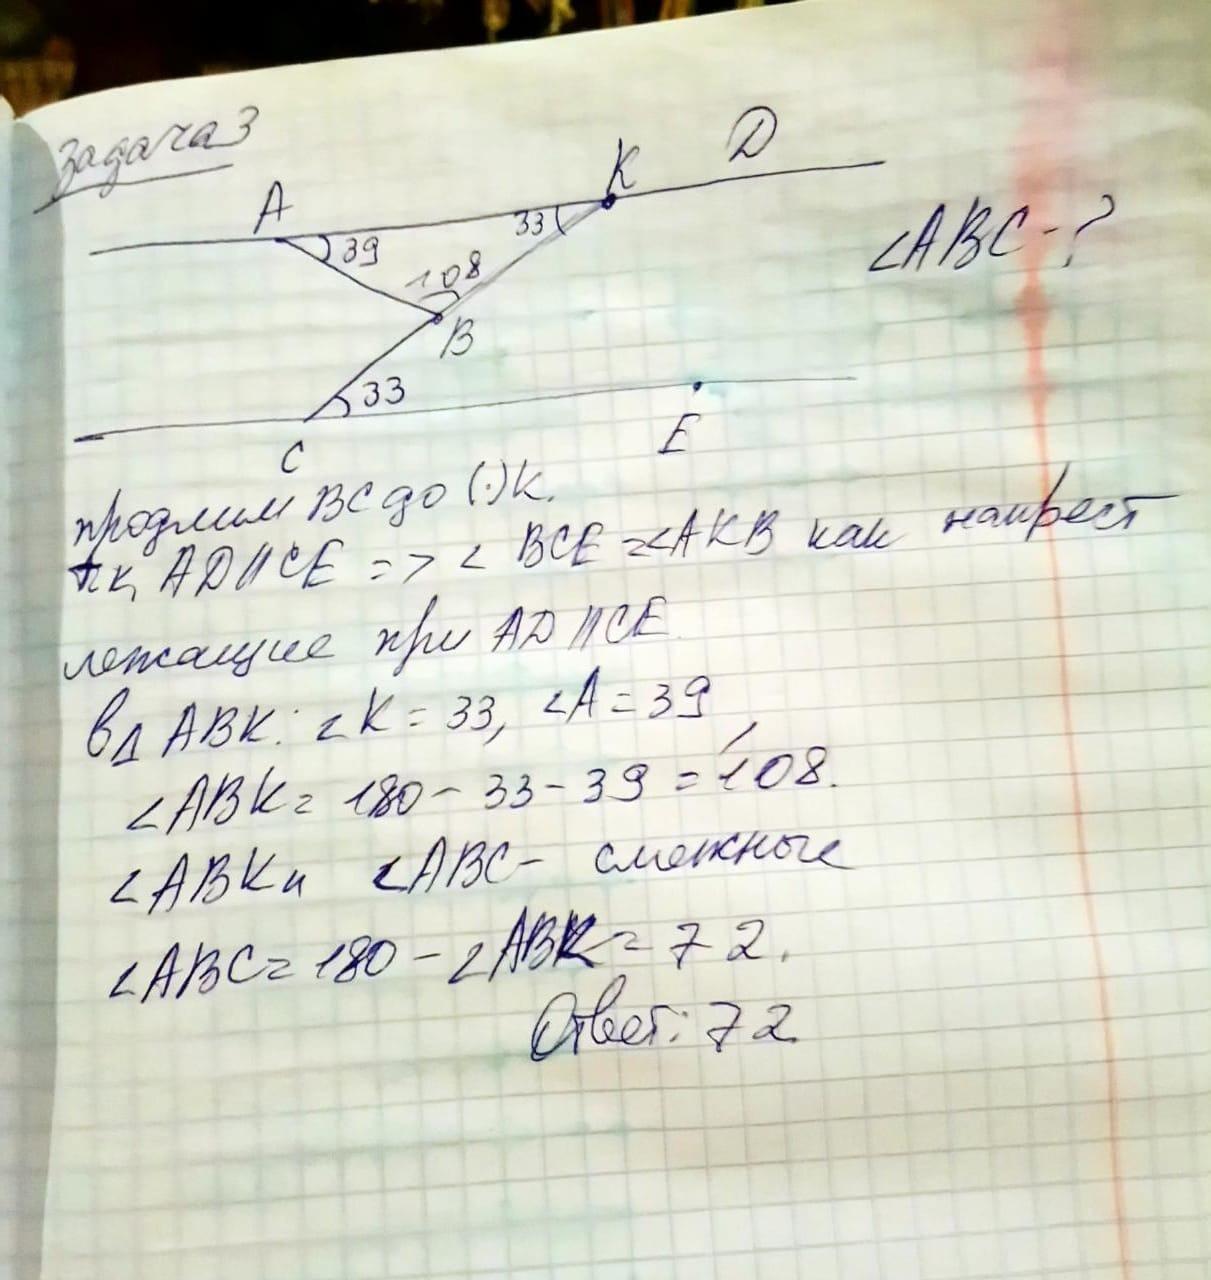 Задача 3
A
K
D
39
33
108
B
33
C
E
∠ABC - ?
продлим BC до (·) K.
т.к. AD || CE => ∠ BCE = ∠AKB как накрест
лежащие при AD || CE.
в Δ ABK: ∠K = 33, ∠A = 39
∠ABK = 180 - 33 - 39 = 108.
∠ABK и ∠ABC - смежные
∠ABC = 180 - ∠ABK = 72.
Ответ: 72